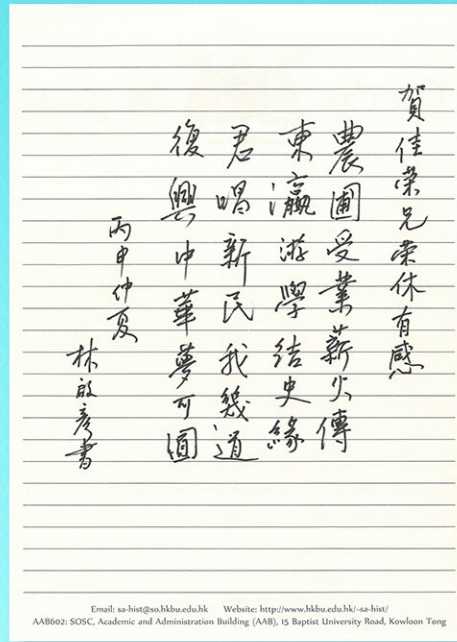 賀佳荣兄荣休有感
農圃受業薪火傳
東瀛游學結史緣
君唱新民我幾道
復興中華夢可圓
丙申仲夏
林啟彥書
Email: sa-hist@so.hkbu.edu.hk Website: http://www.hkbu.edu.hk/~sa-hist/
AAB602: SOSC, Academic and Administration Building (AAB), 15 Baptist University Road, Kowloon Tong